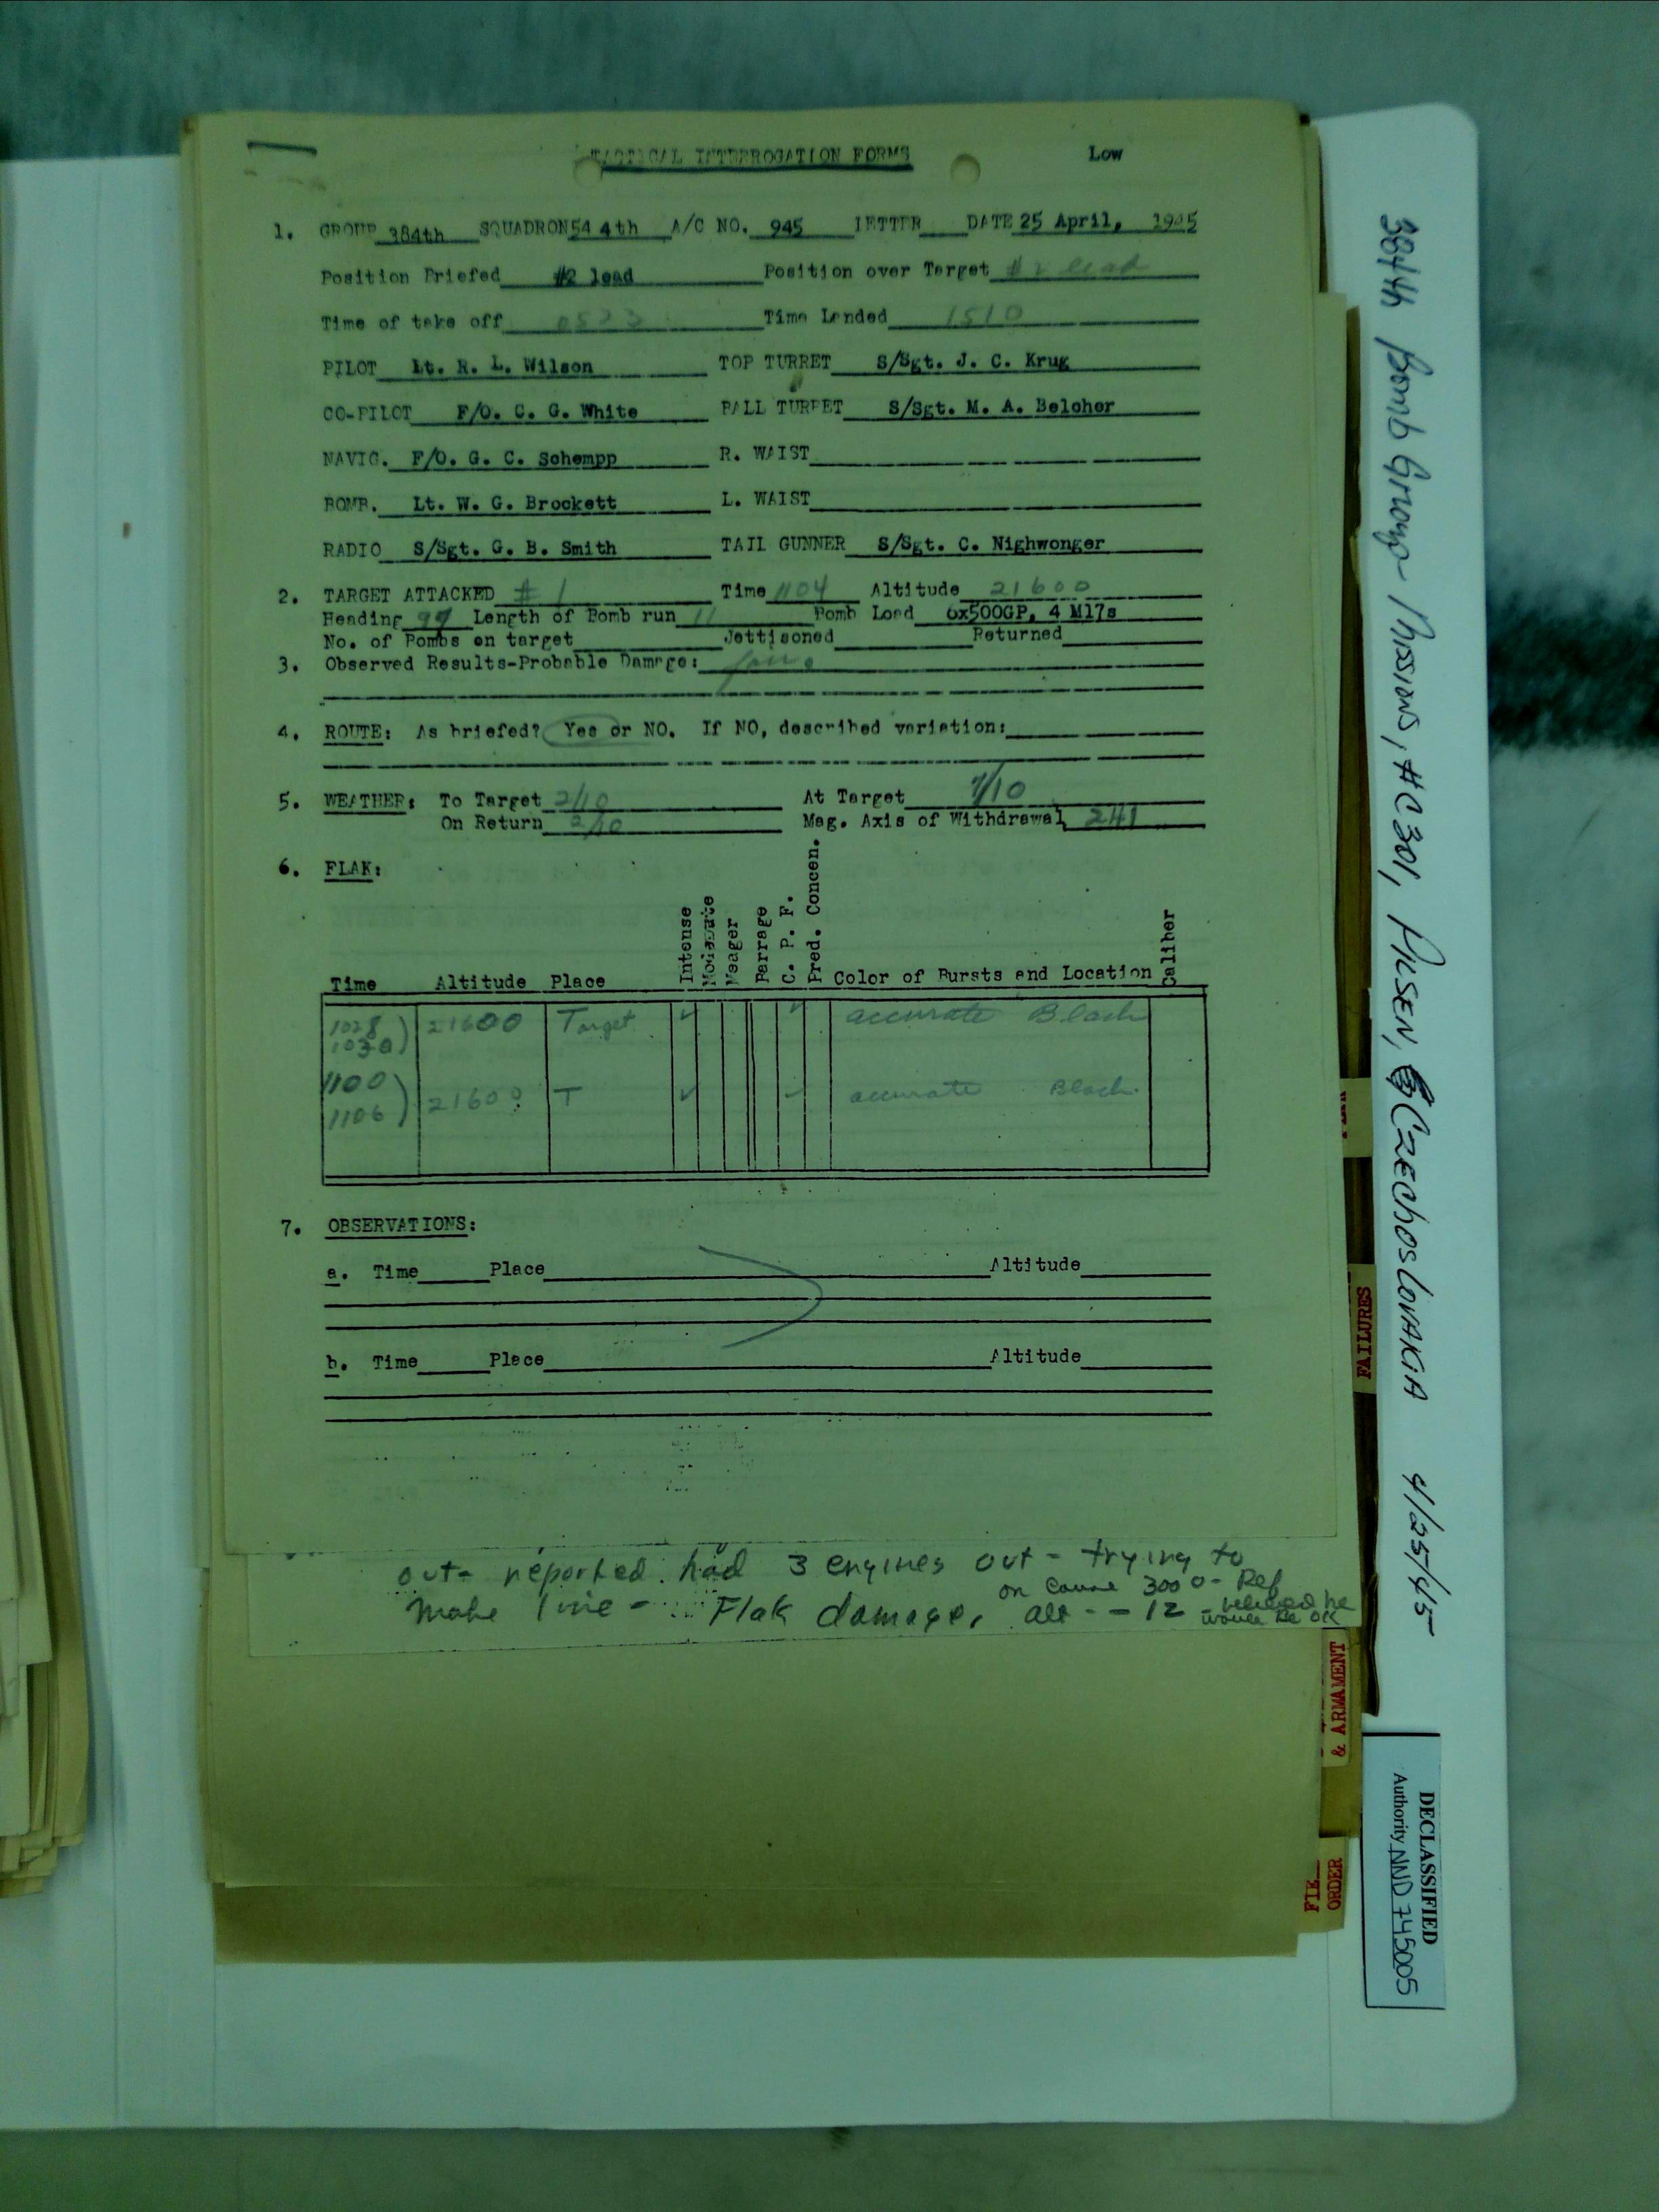 TACTICAL INTERROGATION FORMS Low
1. GROUP 384th SQUADRON 544th A/C NO. 945 LETTER DATE 25 April, 1945
Position Briefed #2 lead Position over Target #2 lead
Time of take off 0523 Time Landed 1510
PILOT Lt. R. L. Wilson TOP TURRET S/Sgt. J. C. Krug
CO-PILOT F/O. C. G. White BALL TURRET S/Sgt. M. A. Belcher
NAVIG. F/O. G. C. Schempp R. WAIST
BOMB. Lt. W. G. Brockett L. WAIST
RADIO S/Sgt. G. B. Smith TAIL GUNNER S/Sgt. C. Nighwonger
2. TARGET ATTACKED #1 Time 1104 Altitude 21600
Heading Length of Bomb run 11 Bomb Load 6x500GP, 4 M17s
No. of Bombs on target Jettisoned Returned
3. Observed Results-Probable Damage:
4. ROUTE: As briefed? Yes or NO. If NO, described variation:
5. WEATHER: To Target 2/10 At Target /10
On Return 2/10 Mag. Axis of Withdrawal 241
6. FLAK:
Time Altitude Place Intense Moderate Meager Barrage C. P. F. Pred. Concen. Color of Bursts and Location Caliber
1028 21600 Target ✓ ✓ accurate Black
1030
1100 21600 T ✓ ✓ accurate Black
1106
7. OBSERVATIONS:
a. Time Place Altitude
b. Time Place Altitude
out- reported had 3 engines out - trying to
on course 3000 - Ref
make line - Flak damage, alt - - 12 - believed he
would be OK
384th Bomb Group Missions, #C301, PILSEN, CZECHOSLOVAKIA 4/25/45
FAILURES
& ARMAMENT
ORDER
DECLASSIFIED
Authority NND 745005